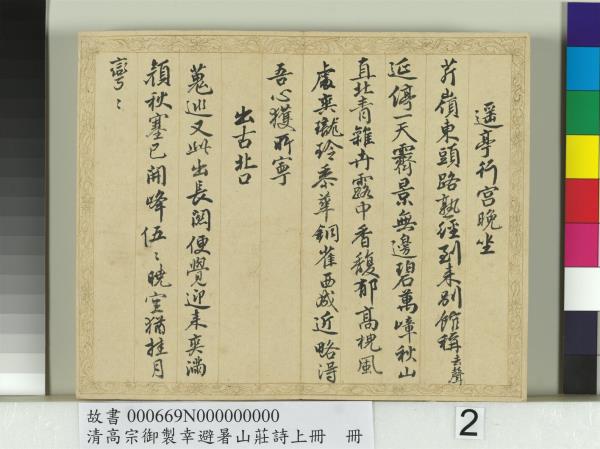 遥亭行宮晚坐
芹嶺東頭路熟經到来別館稱去聲
延停一天霽景無邊碧萬嶂秋山
直北青雜卉露中香馥郁高槐風
處爽瓏玲黍華銅雀西城近略得
吾心獲所寧
出古北口
蒐巡又此出長關便覺迎来爽滿
顏秋塞已開峰伍〻曉空猶挂月
彎〻
故書 000669N000000000
清高宗御製幸避暑山莊詩上冊 冊
2